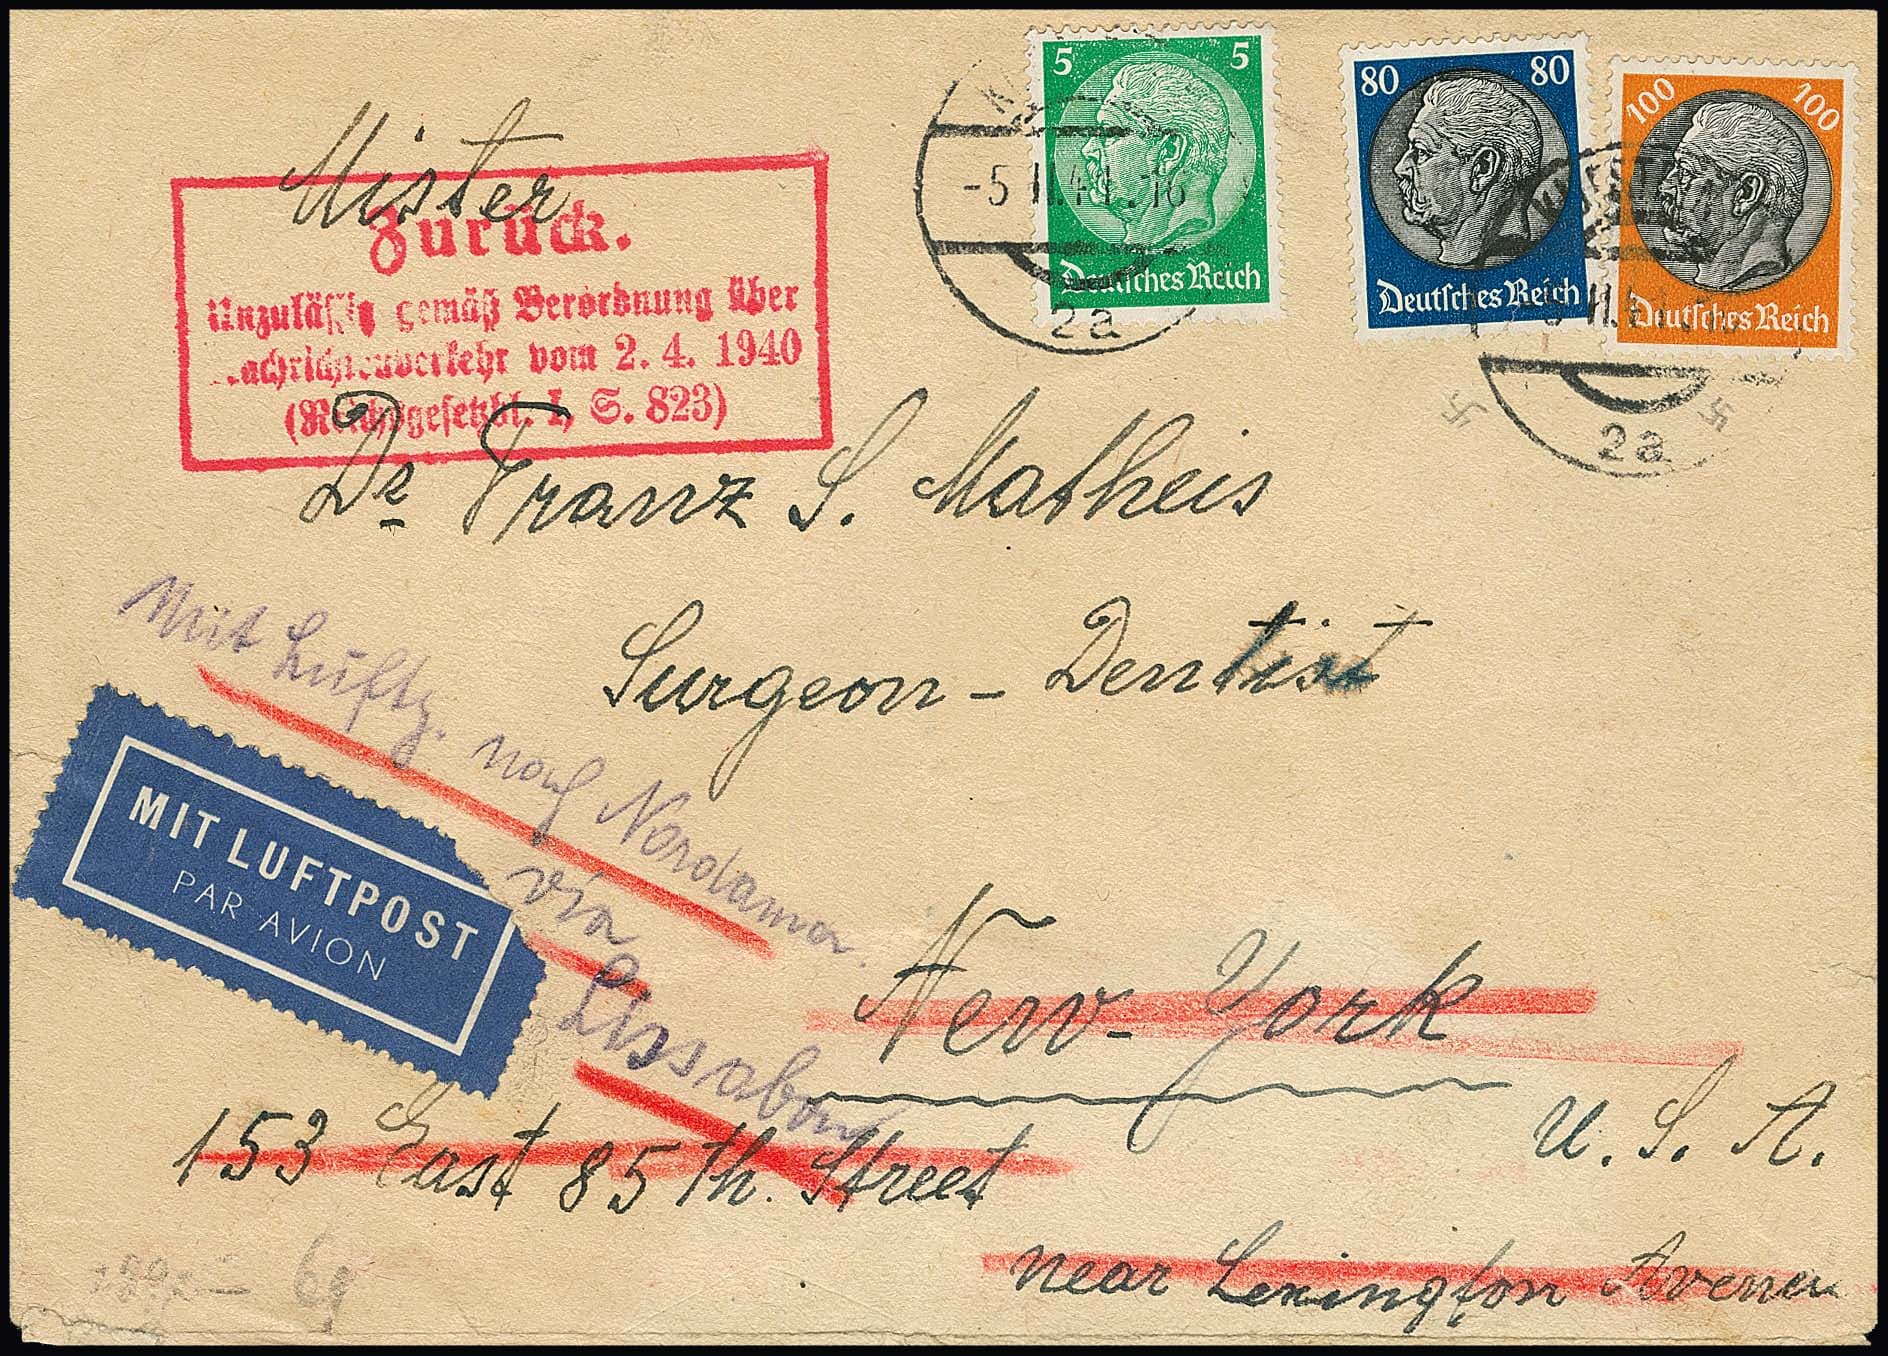 5 5
Deutsches Reich
80 80
Deutsches Reich
100 100
Deutsches Reich
-5.11.41.-16
2a
2a
Mister
Zurück.
Unzulässig gemäß Verordnung über
Nachrichtenverkehr vom 2. 4. 1940
(Reichsgesetzbl. I, S. 823)
Dr Franz S. Matheis
Surgeon - Dentist
Mit Luftp. nach Nordamer.
via
Lissabon
MIT LUFTPOST
PAR AVION
New-York
U. S. A.
153 East 85 th. Street
near Lexington Avenue
6g